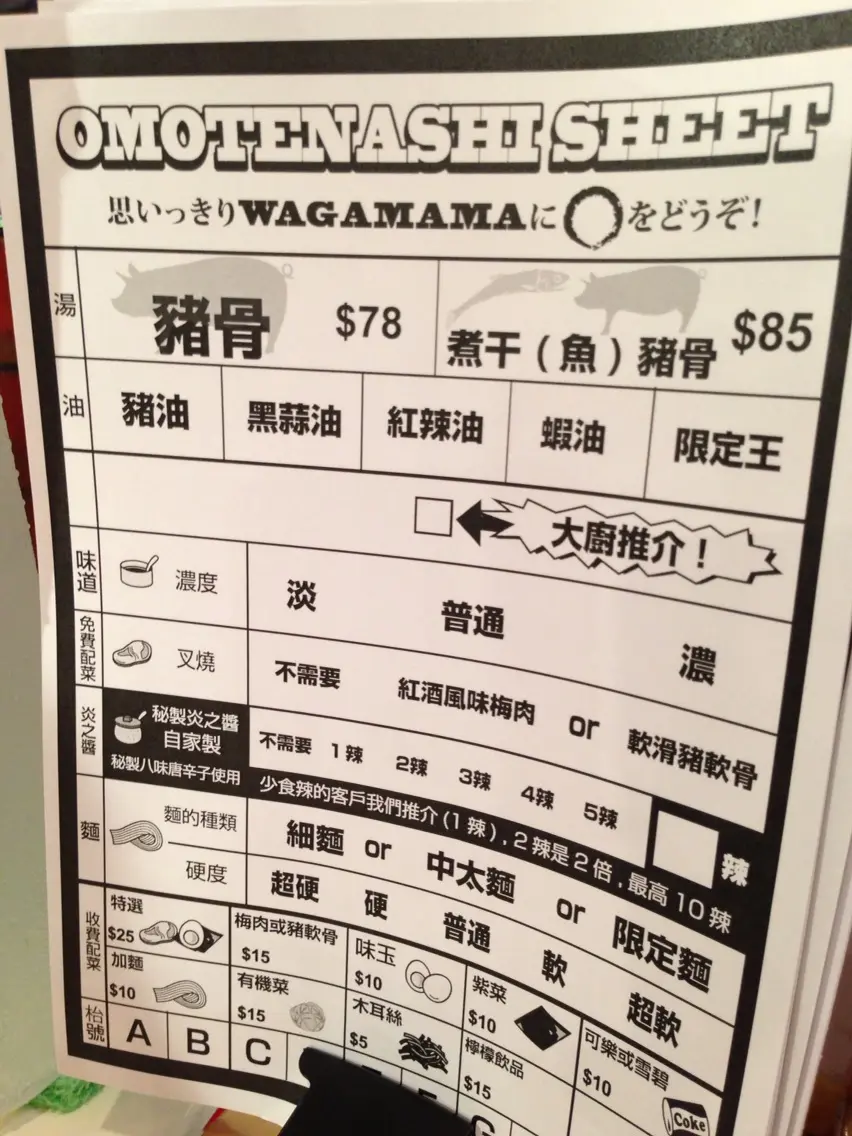 OMOTENASHI SHEET
思いっきりWAGAMAMAに〇をどうぞ!
湯 豬骨 $78 煮干(魚)豬骨 $85
油 豬油 黑蒜油 紅辣油 蝦油 限定王
大廚推介!
味道 濃度 淡 普通 濃
免費配菜 叉燒 不需要 紅酒風味梅肉 or 軟滑豬軟骨
炎之醬 秘製炎之醬 自家製 秘製八味唐辛子使用 不需要 1辣 2辣 3辣 4辣 5辣 辣
少食辣的客戶我們推介(1辣),2辣是2倍,最高10辣
麵 麵的種類 細麵 or 中太麵 or 限定麵
硬度 超硬 硬 普通 軟 超軟
收費配菜 特選 $25 梅肉或豬軟骨 $15 味玉 $10 紫菜 $10 可樂或雪碧 $10 Coke
加麵 $10 有機菜 $15 木耳絲 $5 檸檬飲品 $15
枱號 A B C